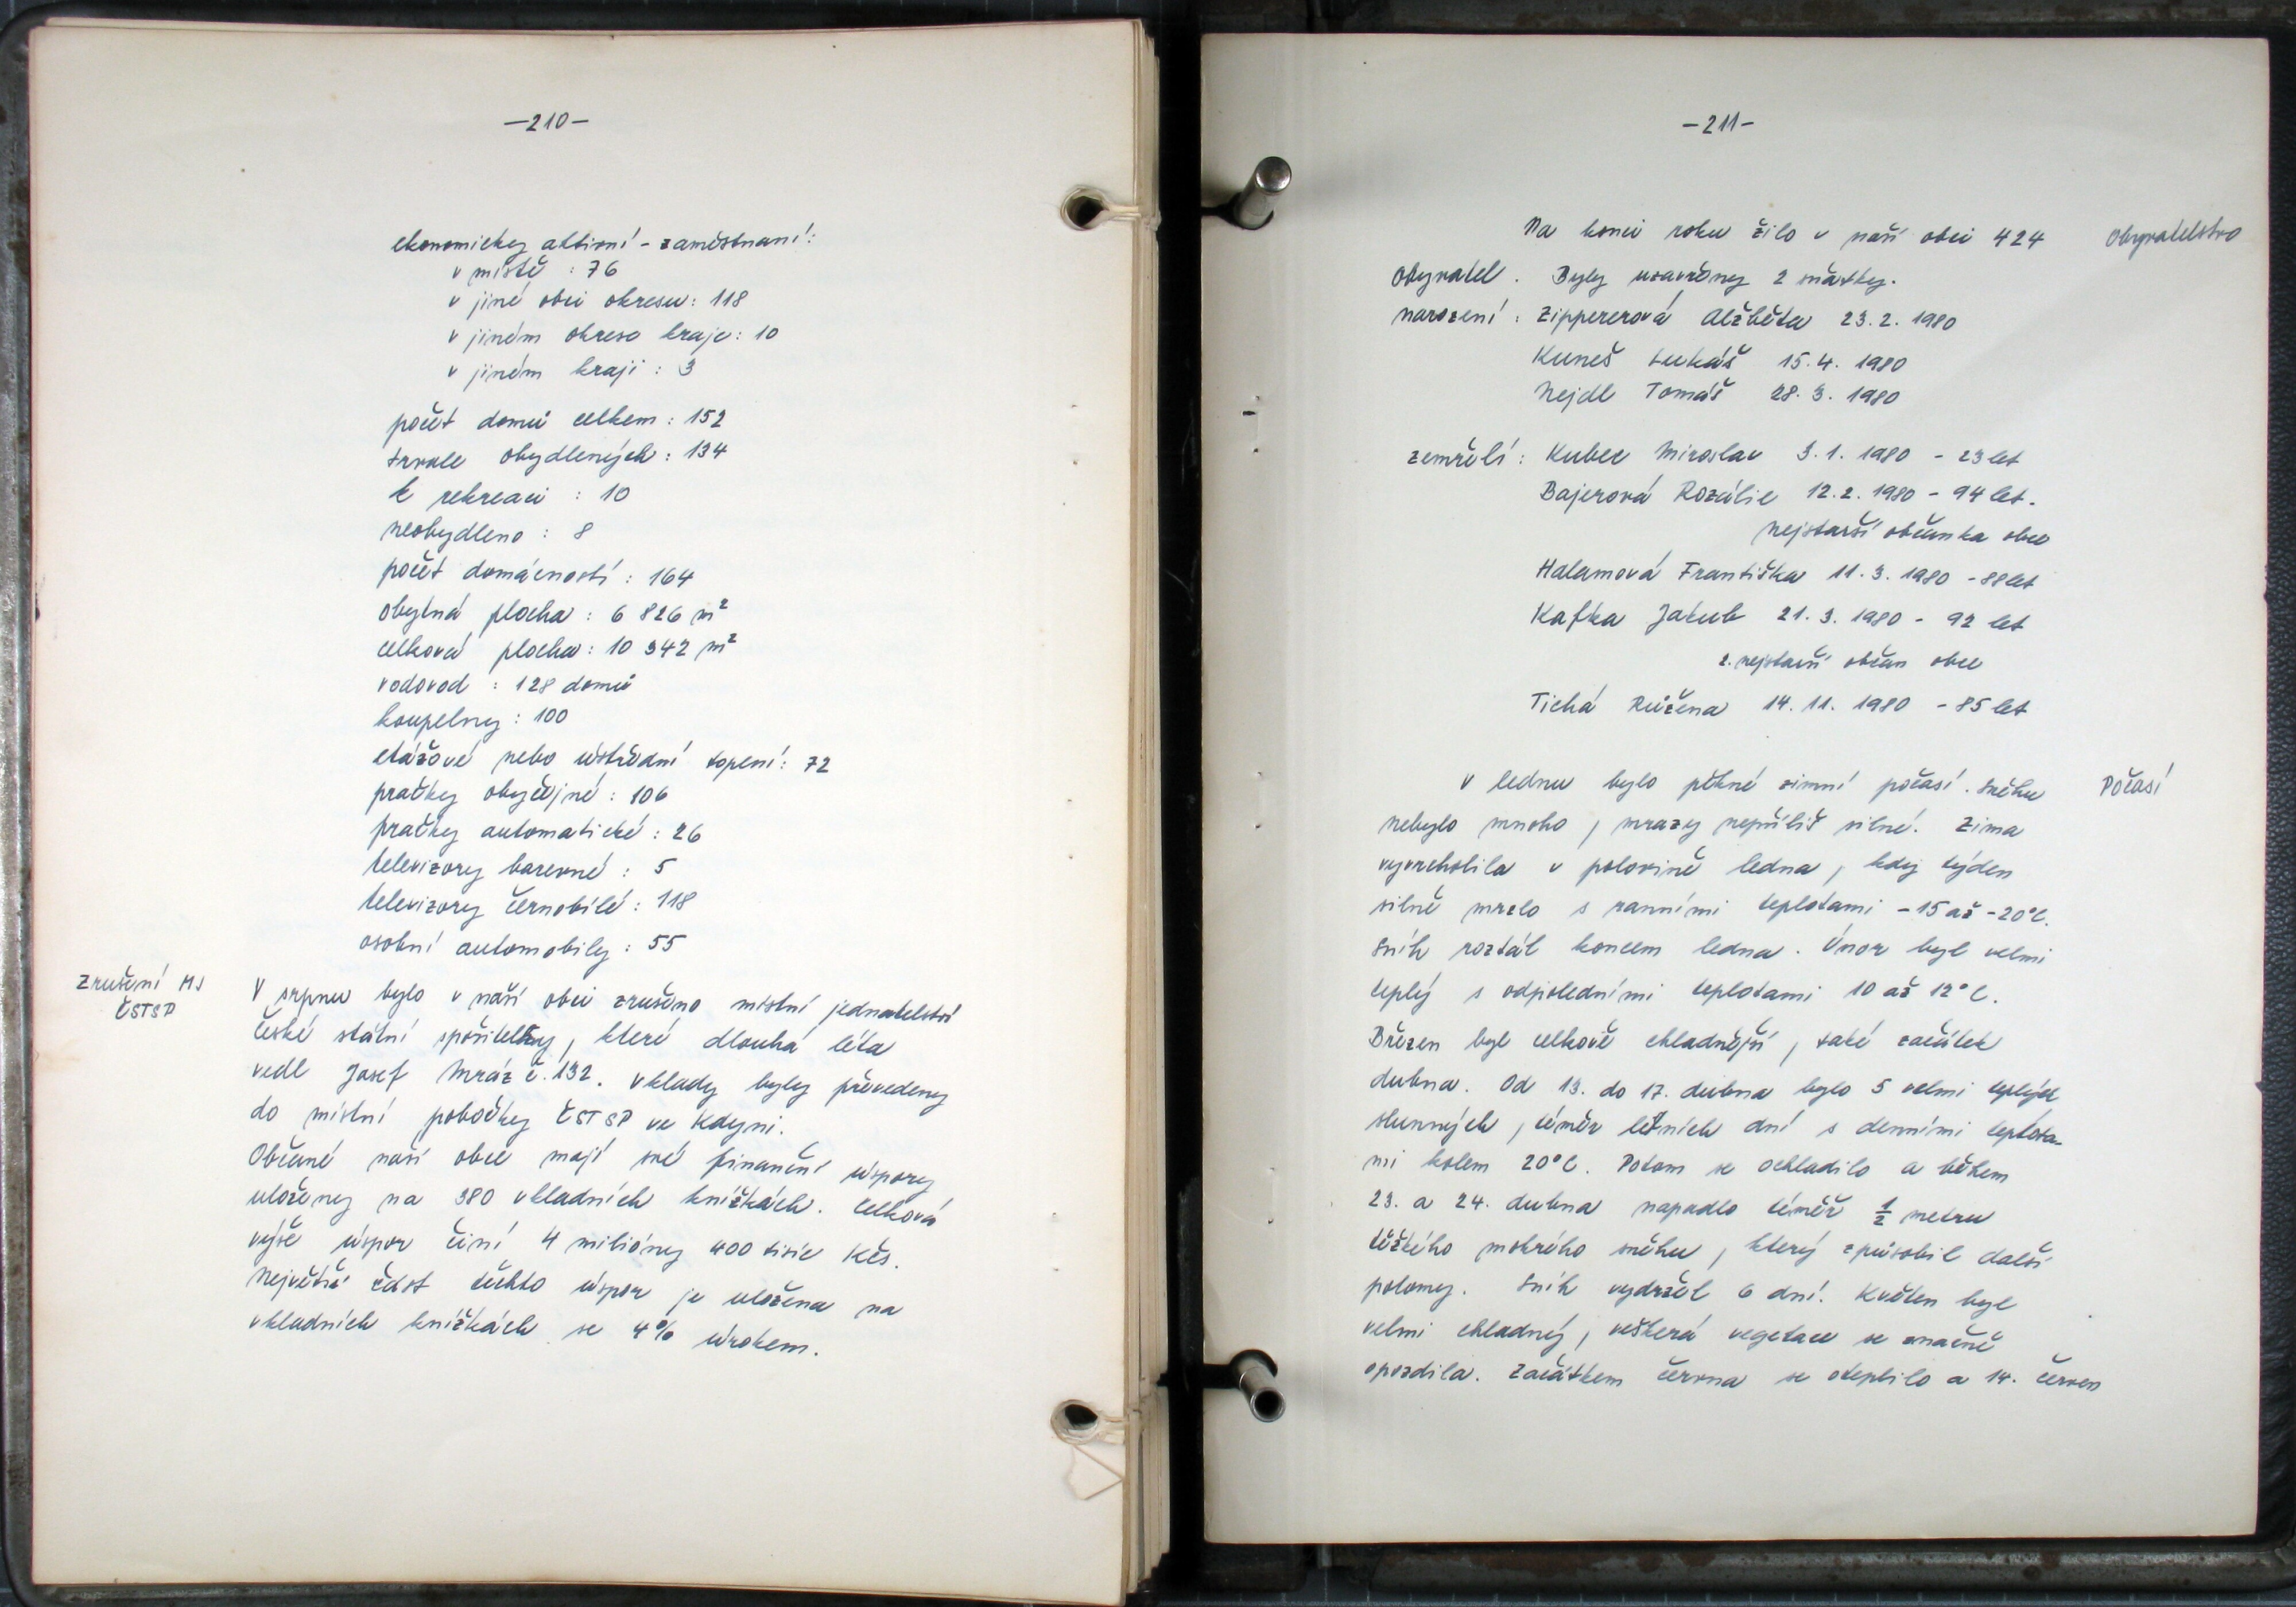 —210—
ekonomicky aktivní - zaměstnaní:
v místě : 76
v jiné obci okresu: 118
v jiném okrese kraje: 10
v jiném kraji : 3
počet domů celkem : 152
trvale obydlených : 134
k rekreaci : 10
neobydleno : 8
počet domácností : 164
obytná plocha : 6 826 m²
celková plocha : 10 342 m²
vodovod : 128 domů
koupelny : 100
etážové nebo ústřední topení: 72
pračky obyčejné : 106
pračky automatické : 26
televizory barevné : 5
televizory černobílé : 118
osobní automobily : 55
Zrušení MJ
ČSTSP
V srpnu bylo v naší obci zrušeno místní jednatelství
České státní spořitelny, které dlouhá léta
vedl Josef Mráz č. 132. Vklady byly převedeny
do místní pobočky ČSTSP ve Kdyni.
Občané naší obce mají své finanční úspory
uloženy na 380 vkladních knížkách. Celková
výše úspor činí 4 milióny 400 tisíc Kčs.
Největší část těchto úspor je uložena na
vkladních knížkách se 4% úrokem.
—211—
Na konci roku žilo v naší obci 424
Obyvatelstvo
obyvatel. Byly uzavřeny 2 sňatky.
narození : Zippererová Alžběta 23. 2. 1980
Kuneš Lukáš 15. 4. 1980
Nejdl Tomáš 28. 3. 1980
zemřelí : Kubec Miroslav 3. 1. 1980 - 23 let
Bajerová Rozálie 12. 2. 1980 - 94 let.
nejstarší občanka obce
Halamová Františka 11. 3. 1980 - 88 let
Kafka Jakub 21. 3. 1980 - 92 let
2. nejstarší občan obce
Tichá Růžena 14. 11. 1980 - 85 let
V lednu bylo pěkné zimní počasí. Sněhu
Počasí
nebylo mnoho, mrazy nepříliš silné. Zima
vyvrcholila v polovině ledna, kdy týden
silně mrzlo s ranními teplotami -15 až -20°C.
Sníh roztál koncem ledna. Únor byl velmi
teplý s odpoledními teplotami 10 až 12°C.
Březen byl celkově chladnější, také začátek
dubna. Od 13. do 17. dubna bylo 5 velmi teplých
slunných, téměř letních dní s denními teplota-
mi kolem 20°C. Potom se ochladilo a během
23. a 24. dubna napadlo téměř ½ metru
těžkého mokrého sněhu, který způsobil další
polomy. Sníh vydržel 6 dní. Květen byl
velmi chladný, veškerá vegetace se značně
opozdila. Začátkem června se oteplilo a 14. červen